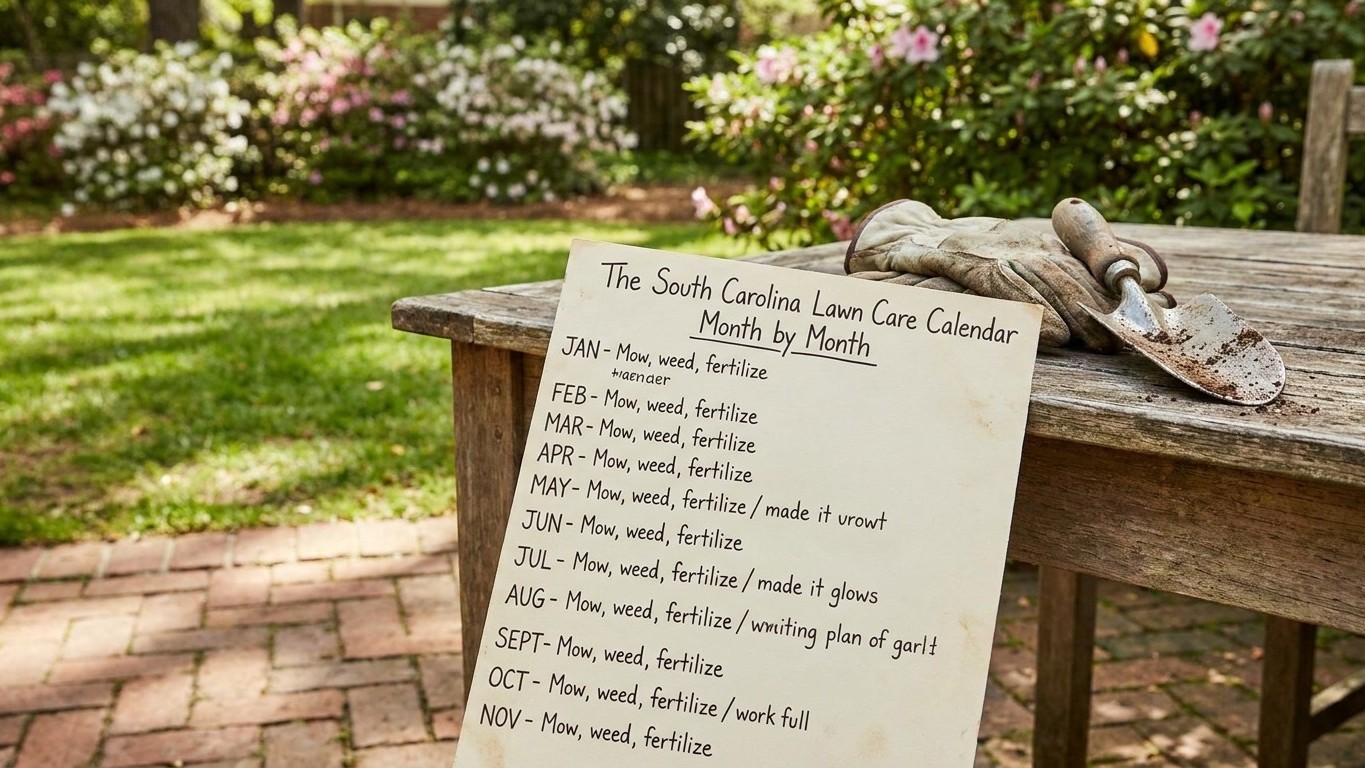 The South Carolina Lawn Care Calendar
Month by Month
JAN - Mow, weed, fertilize
FEB - Mow, weed, fertilize
MAR - Mow, weed, fertilize
APR - Mow, weed, fertilize
MAY - Mow, weed, fertilize / made it urowt
JUN - Mow, weed, fertilize
JUL - Mow, weed, fertilize / made it glows
AUG - Mow, weed, fertilize / plan of
SEPT - Mow, weed, fertilize
OCT - Mow, weed, fertilize / work full
NOV - Mow, weed, fertilize